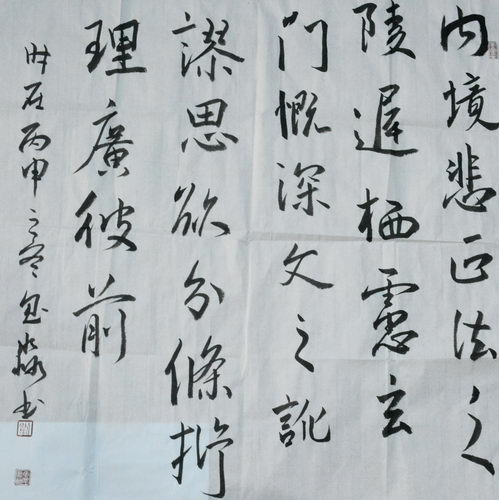 内境悲正法之
陵遲栖慮玄
門慨深文之訛
謬思欲分條析
理廣彼前
時在丙申之冬書